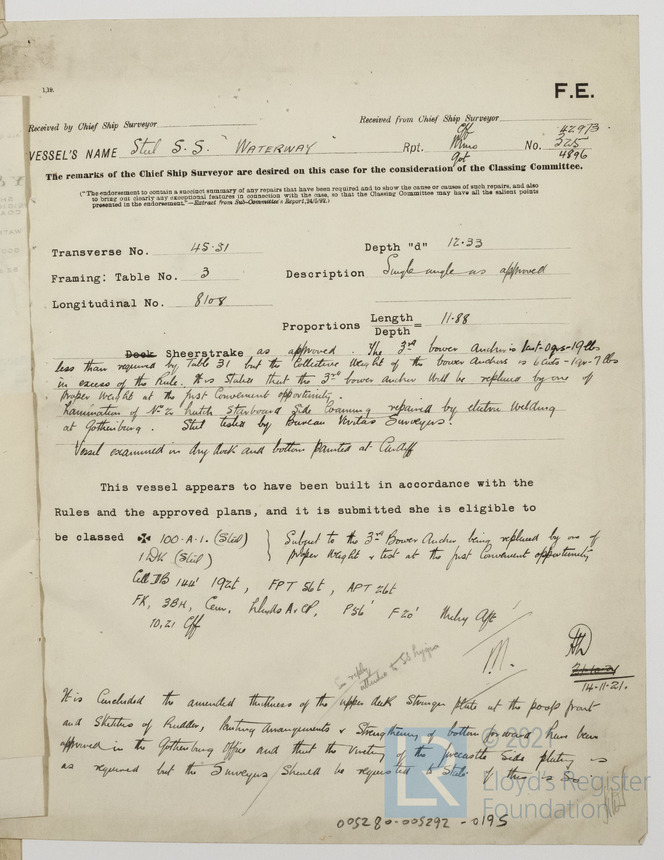 1,19.
F.E.
Received by Chief Ship Surveyor
Received from Chief Ship Surveyor
VESSEL'S NAME Steel S.S. "WATERWAY"
Rpt. Cff Mmo Got No. 42973 325 4896
The remarks of the Chief Ship Surveyor are desired on this case for the consideration of the Classing Committee.
("The endorsement to contain a succinct summary of any repairs that have been required and to show the cause or causes of such repairs, and also
to bring out clearly any exceptional features in connection with the case, so that the Classing Committee may have all the salient points
presented in the endorsement."—Extract from Sub-Committee's Report,
Transverse No. 45.31
Depth "d" 12.33
Framing: Table No. 3
Description Single angle as approved
Longitudinal No. 8108
Proportions Length/Depth = 11.88
Deck Sheerstrake as approved. The 3rd bower Anchor is 1cwt-0qrs-19lbs
less than required by Table 31 but the Collective Weight of the bower Anchors is 6cwts-1qr-7lbs
in excess of the Rule. It is stated that the 3rd bower anchor will be replaced by one of
proper Weight at the first Convenient opportunity.
Lamination of No 2 hatch Starboard Side Coaming repaired by electric Welding
at Gothenburg. Steel tested by Bureau Veritas Surveyors.
Vessel examined in dry dock and bottom painted at Cardiff
This vessel appears to have been built in accordance with the
Rules and the approved plans, and it is submitted she is eligible to
be classed ✠ 100.A.1. (Steel) } Subject to the 3rd Bower Anchor being replaced by one of
1 DK (Steel) proper Weight & test at the first Convenient opportunity
Cell DB 144' 192t, FPT 56t, APT 26t
FK, 3BH, Cem, Lloyds A&CP, P56' F20' Mchy Aft
10,21 Cff
In reply
attention to SS
14-11-21.
It is Concluded the amended thickness of the upper deck Stringer plate at the poop front
and Sketches of Rudder, Masting Arrangements & Strengthening of bottom forward have been
approved in the Gothenburg Office and that the of the forecastle Side plating is
as required but the Surveyors Should be requested to State if this is So
© 2021
LR
Lloyd's Register
Foundation
005280-005292-0195